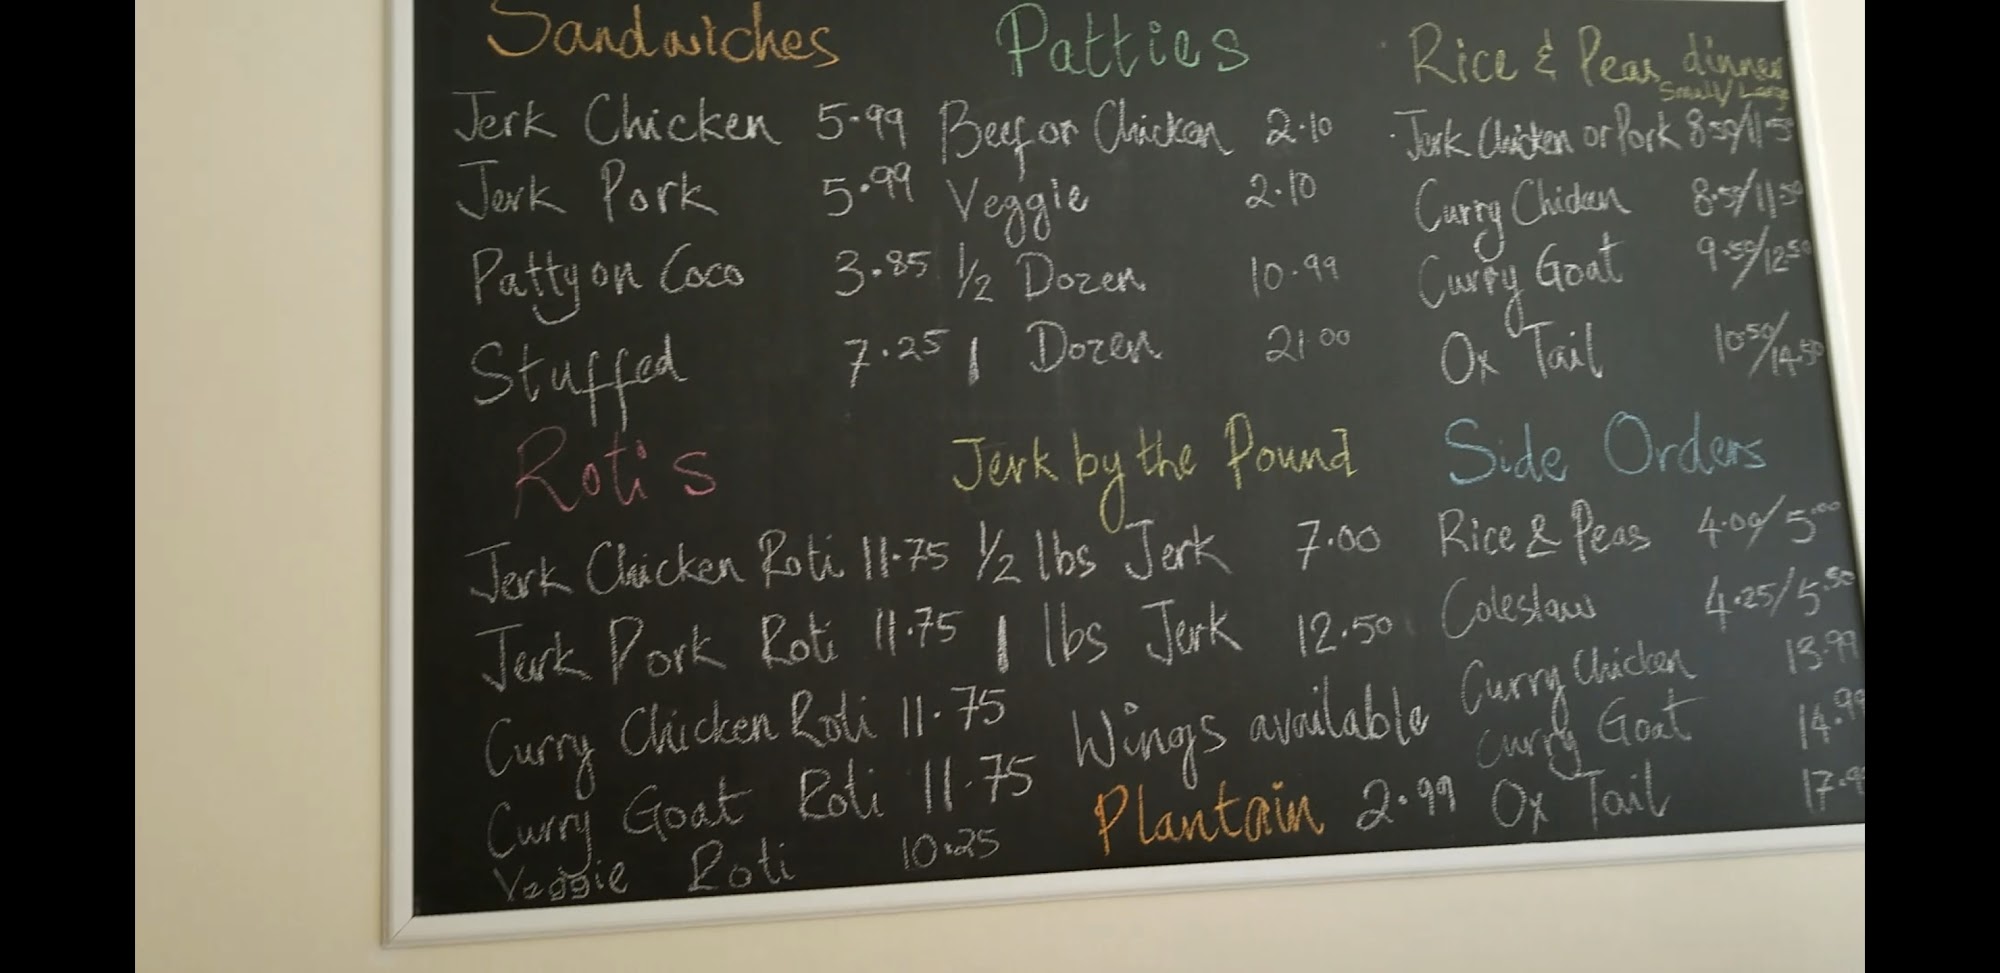 Sandwiches
Jerk Chicken 5.99
Jerk Pork 5.99
Patty on Coco 3.85
Stuffed 7.25
Patties
Beef or Chicken 2.10
Veggie 2.10
1/2 Dozen 10.99
1 Dozen 21.00
Rice & Peas dinner
Small/Large
Jerk Chicken or Pork 8.50/11.50
Curry Chicken 8.50/11.50
Curry Goat 9.50/12.50
Ox Tail 10.50/14.50
Roti's
Jerk Chicken Roti 11.75
Jerk Pork Roti 11.75
Curry Chicken Roti 11.75
Curry Goat Roti 11.75
Veggie Roti 10.25
Jerk by the Pound
1/2 lbs Jerk 7.00
1 lbs Jerk 12.50
Wings available
Plantain 2.99
Side Orders
Rice & Peas 4.00/5.00
Coleslaw 4.25/5.50
Curry Chicken 13.99
Curry Goat 14.99
Ox Tail